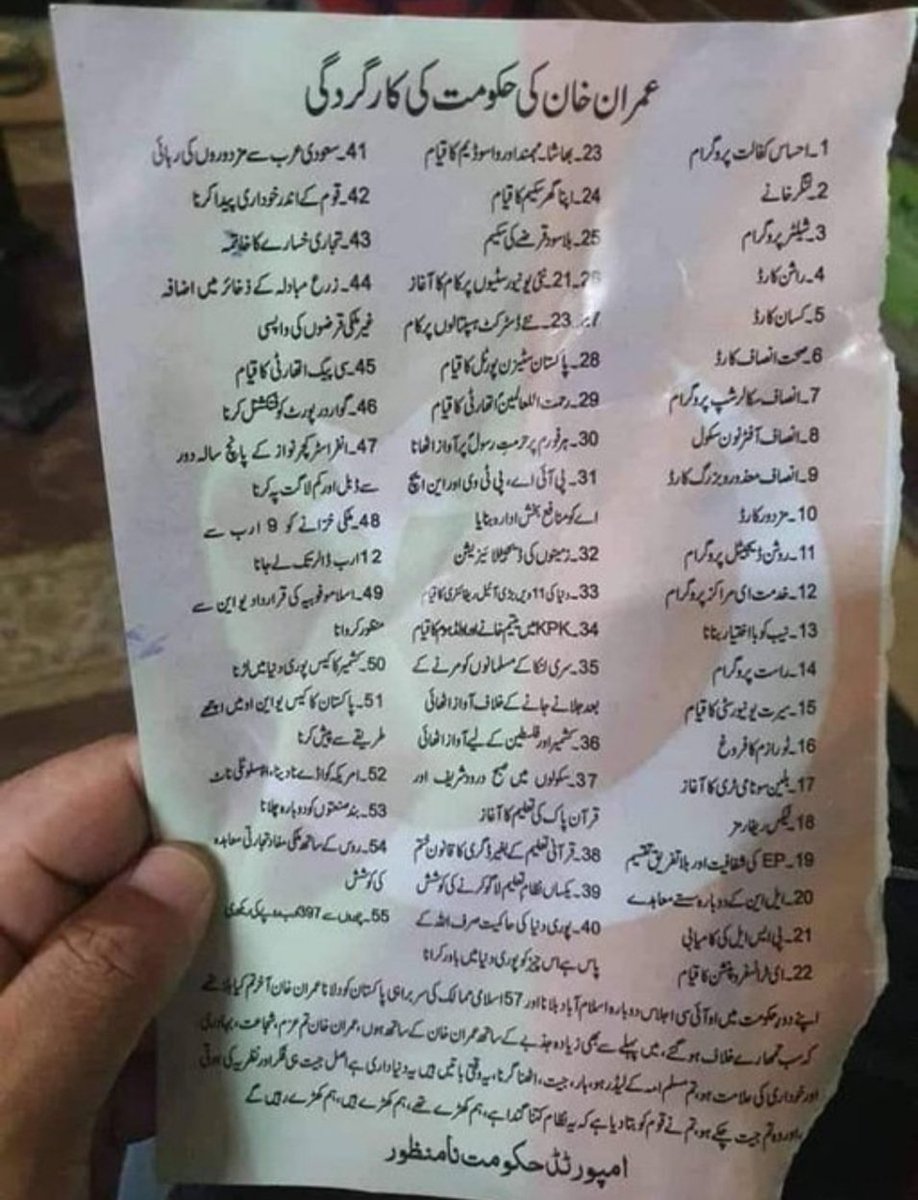 عمران خان کی حکومت کی کارگردگی
1۔ احساس کفالت پروگرام
2۔ لنگر خانے
3۔ شیلٹر پروگرام
4۔ راشن کارڈ
5۔ کسان کارڈ
6۔ صحت انصاف کارڈ
7۔ انصاف سکالرشپ پروگرام
8۔ انصاف آفٹرنون سکول
9۔ انصاف معذور و بزرگ کارڈ
10۔ مزدور کارڈ
11۔ روشن ڈیجیٹل پروگرام
12۔ خدمت ای مراکز پروگرام
13۔ نیب کو بااختیار بنانا
14۔ راست پروگرام
15۔ سیرت یونیورسٹی کا قیام
16۔ ٹورازم کا فروغ
17۔ بلین سونامی ٹری کا آغاز
18۔ ٹیکس ریفارمز
19۔ EP کی شفافیت اور بلاتفریق تقسیم
20۔ ایل این کے دوبارہ سستے معاہدے
21۔ پی ایس ایل کی کامیابی
22۔ ای ٹرانسفر و پنشن کا قیام
23۔ بھاشا۔ مہمند اور داسو ڈیم کا قیام
24۔ اپنا گھر سکیم کا قیام
25۔ بلاسود قرضے کی سکیم
26۔ 21۔ نئی یونیورسٹیوں پر کام کا آغاز
23۔ نئے ڈسٹرکٹ ہسپتالوں پر کام
28۔ پاکستان سٹیزن پورٹل کا قیام
29۔ رحمت اللعالمین اتھارٹی کا قیام
30۔ ہر فورم پر حرمت رسولؐ پر آواز اٹھانا
31۔ پی آئی اے، پی ٹی وی اور این ایچ
اے کو منافع بخش ادارہ بنایا
32۔ زمینوں کی ڈیجیٹلائیزیشن
33۔ دنیا کی 11 ویں بڑی آئیل ریفائنری کا قیام
34۔ KPK میں یتیم خانے اور اولڈ ہوم کا قیام
35۔ سری لنکا کے مسلمانوں کو مرنے کے
بعد جلانے جانے کے خلاف آواز اٹھائی
36۔ کشمیر اور فلسطین کے لیے آواز اٹھائی
37۔ سکولوں میں صبح درود شریف اور
قرآن پاک کی تعلیم کا آغاز
38۔ قرآنی تعلیم کے بغیر ڈگری کا قانون ختم
39۔ یکساں نظام تعلیم لاگو کرنے کی کوشش
40۔ پوری دنیا کی حاکمیت صرف اللہ کے
پاس ہے اس چیز کو پوری دنیا میں باور کرانا
41۔ سعودی عرب سے مزدوروں کی رہائی
42۔ قوم کے اندر خوداری پیدا کرنا
43۔ تجاری خسارے کا خاتمہ
44۔ زرع مبادلہ کے ذخائر میں اضافہ
غیر ملکی قرضوں کی واپسی
45۔ سی پیک اتھارٹی کا قیام
46۔ گوادر پورٹ کو فنکشنل کرنا
47۔ انفراسٹرکچر نواز کے پانچ سالہ دور
سے ڈبل اور کم لاگت پہ کرنا
48۔ ملکی خزانے کو 9 ارب سے
12 ارب ڈالر تک لے جانا
49۔ اسلاموفوبیہ کی قرارداد یو این سے
منظور کروانا
50۔ کشمیر کا کیس پوری دنیا میں لڑنا
51۔ پاکستان کا کیس یو این او میں اچھے
طریقے سے پیش کرنا
52۔ امریکہ کو اڈے نا دینا، ابسلوٹلی ناٹ
53۔ بند صنعتوں کو دوبارہ چلانا
54۔ روس کے ساتھ ملکی مفاد تجارتی معاہدہ
کی کوشش
55۔ چوروں سے 397 ارب روپے کی ریکوری
اپنے دور حکومت میں او آئی سی اجلاس دوبارہ اسلام آباد بلانا اور 57 اسلامی ممالک کی سربراہی پاکستان کو دلانا عمران خان آخر تم کیا بلا تھے
کہ سب تمھارے خلاف ہو گئے، میں پہلے سے بھی زیادہ جذبے کے ساتھ عمران خان کے ساتھ ہوں، عمران خان تم عزم، شجاعت، بہادری
اور خوداری کی علامت ہو، تم مسلم امہ کے لیڈر ہو، ہار، جیت، اٹھنا گرنا، یہ وقتی باتیں ہیں یہ دنیاداری ہے اصل جیت ہی فکر اور نظریہ کی ہوتی
، اور وہ تم جیت چکے ہو، تم نے قوم کو بتا دیا ہے کہ یہ نظام کتنا گندا ہے، ہم کھڑے تھے، ہم کھڑے ہیں، ہم کھڑے رہیں گے
امپورٹڈ حکومت نامنظور